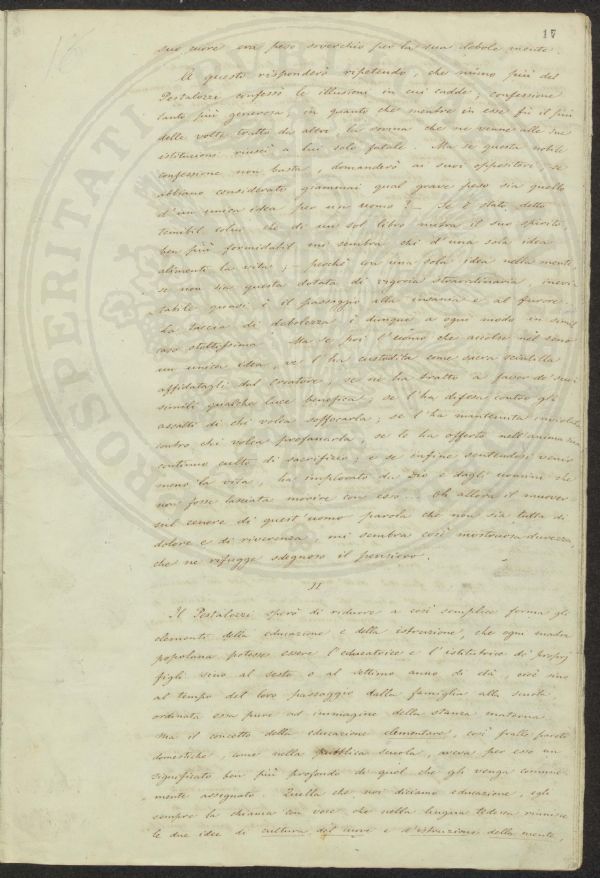 17
suo cuore era peso soverchio per la sua debole mente.
A questo risponderò ripetendo, che niuno più del
Pestalozzi confessò le illusioni in cui cadde; confessione
tanto più generosa, in quanto che mentre in esse fu il più
delle volte tratto da altri, la somma che ne venne alle sue
istituzioni riuscì a lui solo fatale. Ma se questa nobile
confessione non basta, domanderò ai suoi oppositori se
abbiano considerato giammai qual grave peso sia quello
d'un unica idea per un uomo? — Se è stato detto
temibil colui che di un sol libro nutra il suo spirito,
ben più formidabil mi sembra chi d'una sola idea
alimenti la vita; perchè con una sola idea nella mente
se non sia questa dotata di vigoria straordinaria, inevi
tabile quasi è il passaggio alla insania e al furore.
La taccia di debolezza è dunque a ogni modo in simil
caso stoltissima. Ma se poi l'uomo che accolse nel seno
un unica idea, ve l'ha custodita come sacra scintilla
affidatagli dal Creatore, se ne ha tratto a favor de' suoi
simili qualche luce benefica; se l'ha difesa contro gli
assalti di chi volea soffocarla; se l'ha mantenuta inviolata
contro chi volea profanarla, se le ha offerto nell'anima sua
continuo culto di sacrifizio; e se infine sentendosi venir
meno la vita, ha implorato da Dio e dagli uomini che
non fosse lasciata morire con esso... Oh allora il muover
sul cenere di quest'uomo parola che non sia tutta di
dolore e di riverenza, mi sembra così mostruosa durezza,
che ne rifugge sdegnoso il pensiero.
II
Il Pestalozzi sperò di ridurre a così semplice forma gli
elementi della educazione e della istruzione, che ogni madre
popolana potesse essere l'educatrice e l'istitutrice di proprj
figli sino al sesto o al settimo anno di età, cioè sino
al tempo del loro passaggio dalla famiglia alla scuola
ordinata essa pure ad immagine della stanza materna.
Ma il concetto della educazione elementare, così fralle pareti
domestiche, come nella pubblica scuola, aveva per esso un
significato ben più profondo di quel che gli venga comune
mente assegnato. Quella che noi diciamo educazione, egli
sempre la chiama con voce che nella lingua tedesca riunisce
le due idee di cultura del cuore e d'istruzione della mente,
PROSPERITATI